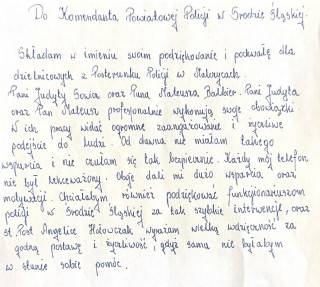 Do Komendanta Powiatowej Policji w Środzie Śląskiej.
Składam w imieniu swoim podziękowanie i pochwałę dla
dzielnicowych z Posterunku Policji w Malczycach.
Pani Judyty Sowa oraz Pana Mateusza Baldier. Pani Judyta
oraz Pan Mateusz profesjonalnie wykonują swoje obowiązki
W ich pracy widać ogromne zaangażowanie i życzliwe
podejście do ludzi. Od dawna nie miałam takiego
wsparcia i nie czułam się tak bezpiecznie. Każdy mój telefon
nie był lekceważony. Oboje dali mi dużo wsparcia oraz
motywacji. Chciałabym również podziękować funkcjonariuszom
policji w Środzie Śląskiej za tak szybkie interwencje, oraz
st. Post Angelice Hołowczak wyrażam wielką wdzięczność za
godną postawę i życzliwość, gdyż sama nie byłabym
w stanie sobie pomóc.